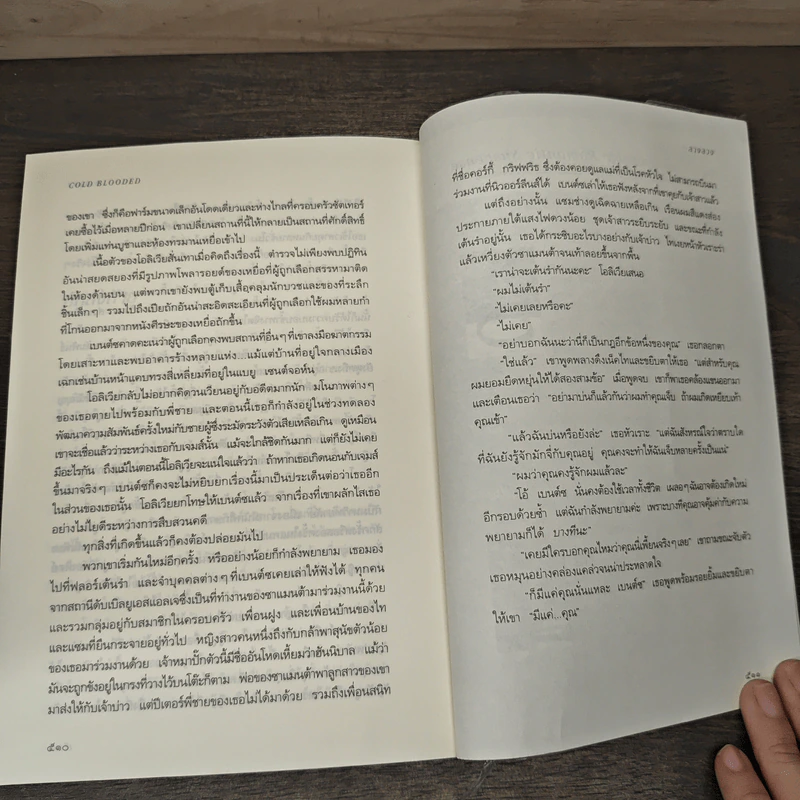 COLD BLOODED
ของเขา ซึ่งก็คือฟาร์มขนาดเล็กอันโดดเดี่ยวและห่างไกลที่ครอบครัวชัดเทอร์
เคยซื้อไว้เมื่อหลายปีก่อน เขาเปลี่ยนสถานที่นี้ให้กลายเป็นสถานที่ศักดิ์สิทธิ์
โดยเพิ่มแท่นบูชาและห้องทรมานเหยื่อเข้าไป
เนื้อตัวของโอลิเวียสั่นเทาเมื่อคิดถึงเรื่องนี้ ตำรวจไม่เพียงพบปฏิทิน
อันน่าสยดสยองที่มีรูปภาพโพลารอยด์ของเหยื่อที่ผู้ถูกเลือกสรรหามาติด
ในห้องด้านบน แต่พวกเขายังพบตู้เก็บเสื้อคลุมนักบวชและของที่ระลึก
ชิ้นเล็กๆ รวมไปถึงเปียถักอันน่าสะอิดสะเอียนที่ผู้ถูกเลือกใช้ผมหลายกำ
ที่โกนออกมาจากหนังศีรษะของเหยื่อถักขึ้น
เบนต์ซคาดคะเนว่าผู้ถูกเลือกคงพบสถานที่อื่นๆ ที่เขาลงมือฆาตกรรม
โดยเสาะหาและพบอาคารร้างหลายแห่ง...แม้แต่บ้านที่อยู่ใจกลางเมือง
เฉกเช่นบ้านหน้าแคบทรงสี่เหลี่ยมที่อยู่ในแบยู เซนต์จอห์น
โอลิเวียกลับไม่อยากคิดวนเวียนอยู่กับอดีตมากนัก มโนภาพต่างๆ
ของเธอตายไปพร้อมกับพี่ชาย และตอนนี้เธอก็กำลังอยู่ในช่วงทดลอง
พัฒนาความสัมพันธ์ครั้งใหม่กับชายผู้ซึ่งระมัดระวังตัวเสียเหลือเกิน ดูเหมือน
เขาจะเชื่อแล้วว่าระหว่างเธอกับเจมส์นั้น แม้จะใกล้ชิดกันมาก แต่ก็ยังไม่เคย
มีอะไรกัน ถึงแม้ในตอนนี้โอลิเวียจะแน่ใจแล้วว่า ถ้าหากเธอเกิดนอนกับเจมส์
ขึ้นมาจริงๆ เบนต์ซก็คงจะไม่หยิบยกเรื่องนี้มาเป็นประเด็นต่อว่าเธออีก
ในส่วนของเธอนั้น โอลิเวียยกโทษให้เบนต์ซแล้ว จากเรื่องที่เขาผลักไสเธอ
อย่างไม่ไยดีระหว่างการสืบสวนคดี
ทุกสิ่งที่เกิดขึ้นแล้วก็คงต้องปล่อยมันไป
พวกเขาเริ่มกันใหม่อีกครั้ง หรืออย่างน้อยก็กำลังพยายาม เธอมอง
ไปที่ฟลอร์เต้นรำ และจำบุคคลต่างๆ ที่เบนต์ซเคยเล่าให้ฟังได้ ทุกคน
จากสถานีดับเบิลยูเอสแอลเจซึ่งเป็นที่ทำงานของซาแมนต้ามาร่วมงานนี้ด้วย
และรวมกลุ่มอยู่กับสมาชิกในครอบครัว เพื่อนฝูง และเพื่อนบ้านของไท
และแซมที่ยืนกระจายอยู่ทั่วไป หญิงสาวคนหนึ่งถึงกับกล้าพาสุนัขตัวน้อย
ของเธอมาร่วมงานด้วย เจ้าหมาปั๊กตัวนี้มีชื่ออันโหดเหี้ยมว่าฮันนิบาล แม้ว่า
มันจะถูกขังอยู่ในกรงที่วางไว้บนโต๊ะก็ตาม พ่อของซาแมนต้าพาลูกสาวของเขา
มาส่งให้กับเจ้าบ่าว แต่ปีเตอร์พี่ชายของเธอไม่ได้มาด้วย รวมถึงเพื่อนสนิท
๕๑๐
ที่ชื่อคอร์กี้ กริฟฟริธ ซึ่งต้องคอยดูแลแม่ที่เป็นโรคหัวใจ ไม่สามารถบินมา
ร่วมงานที่นิวออร์ลีนส์ได้ เบนต์ซเล่าให้เธอฟังหลังจากที่เขาคุยกับเจ้าสาวแล้ว
แต่ถึงอย่างนั้น แซมช่างดูเฉิดฉายเหลือเกิน เรือนผมสีแดงส่อง
ประกายภายใต้แสงไฟดวงน้อย ชุดเจ้าสาวระยิบระยับ และขณะที่กำลัง
เต้นรำอยู่นั้น เธอได้กระซิบอะไรบางอย่างกับเจ้าบ่าว ไทเลยหน้าหัวเราะร่า
แล้วเหวี่ยงตัวซาแมนต้าจนเท้าลอยขึ้นจากพื้น
“เราน่าจะเต้นรำกันนะคะ” โอลิเวียเสนอ
“ผมไม่เต้นรำ”
“ไม่เคยเลยหรือคะ”
“ไม่เคย”
“อย่าบอกฉันนะว่านี่ก็เป็นกฎอีกข้อหนึ่งของคุณ” เธอกลอกตา
“ใช่แล้ว” เขาพูดพลางดึงเน็คไทและขยิบตาให้เธอ “แต่สำหรับคุณ
ผมยอมยืดหยุ่นให้ได้สองสามข้อ” เมื่อพูดจบ เขาก็พาเธอคล้องแขนออกมา
และเตือนเธอว่า “อย่ามาบ่นก็แล้วกันว่าผมทำคุณเจ็บ ถ้าผมเกิดเหยียบเท้า
คุณเข้า”
“แล้วฉันบ่นหรือยังล่ะ” เธอหัวเราะ “แต่ฉันสังหรณ์ใจว่าตราบใด
ที่ฉันยังรู้จักมักจี่กับคุณอยู่ คุณคงจะทำให้ฉันเจ็บหลายครั้งเป็นแน่”
“ผมว่าคุณคงรู้จักผมแล้วละ”
“โอ้ เบนต์ซ นั่นคงต้องใช้เวลาทั้งชีวิต เผลอๆ ฉันอาจต้องเกิดใหม่
อีกรอบด้วยซ้ำ แต่ฉันกำลังพยายามค่ะ เพราะบางทีคุณอาจคุ้มค่ากับความ
พยายามก็ได้ บางทีนะ”
“เคยมีใครบอกคุณไหมว่าคุณนี่เพี้ยนจริงๆ เลย” เขาถามขณะจับตัว
เธอหมุนอย่างคล่องแคล่วจนน่าประหลาดใจ
“ก็มีแค่คุณนั่นแหละ เบนต์ซ” เธอพูดพร้อมรอยยิ้มและขยิบตา
ให้เขา “มีแค่...คุณ”
๕๑๑